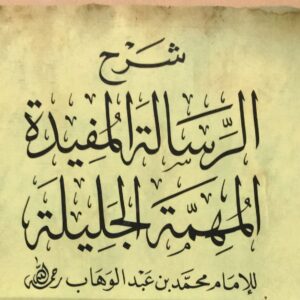 شَرْح
الرِّسَالَةُ المُفِيدَة
المُهِمَّة الجَلِيلَة
للإمام محمد بن عبد الوهاب رحمه الله